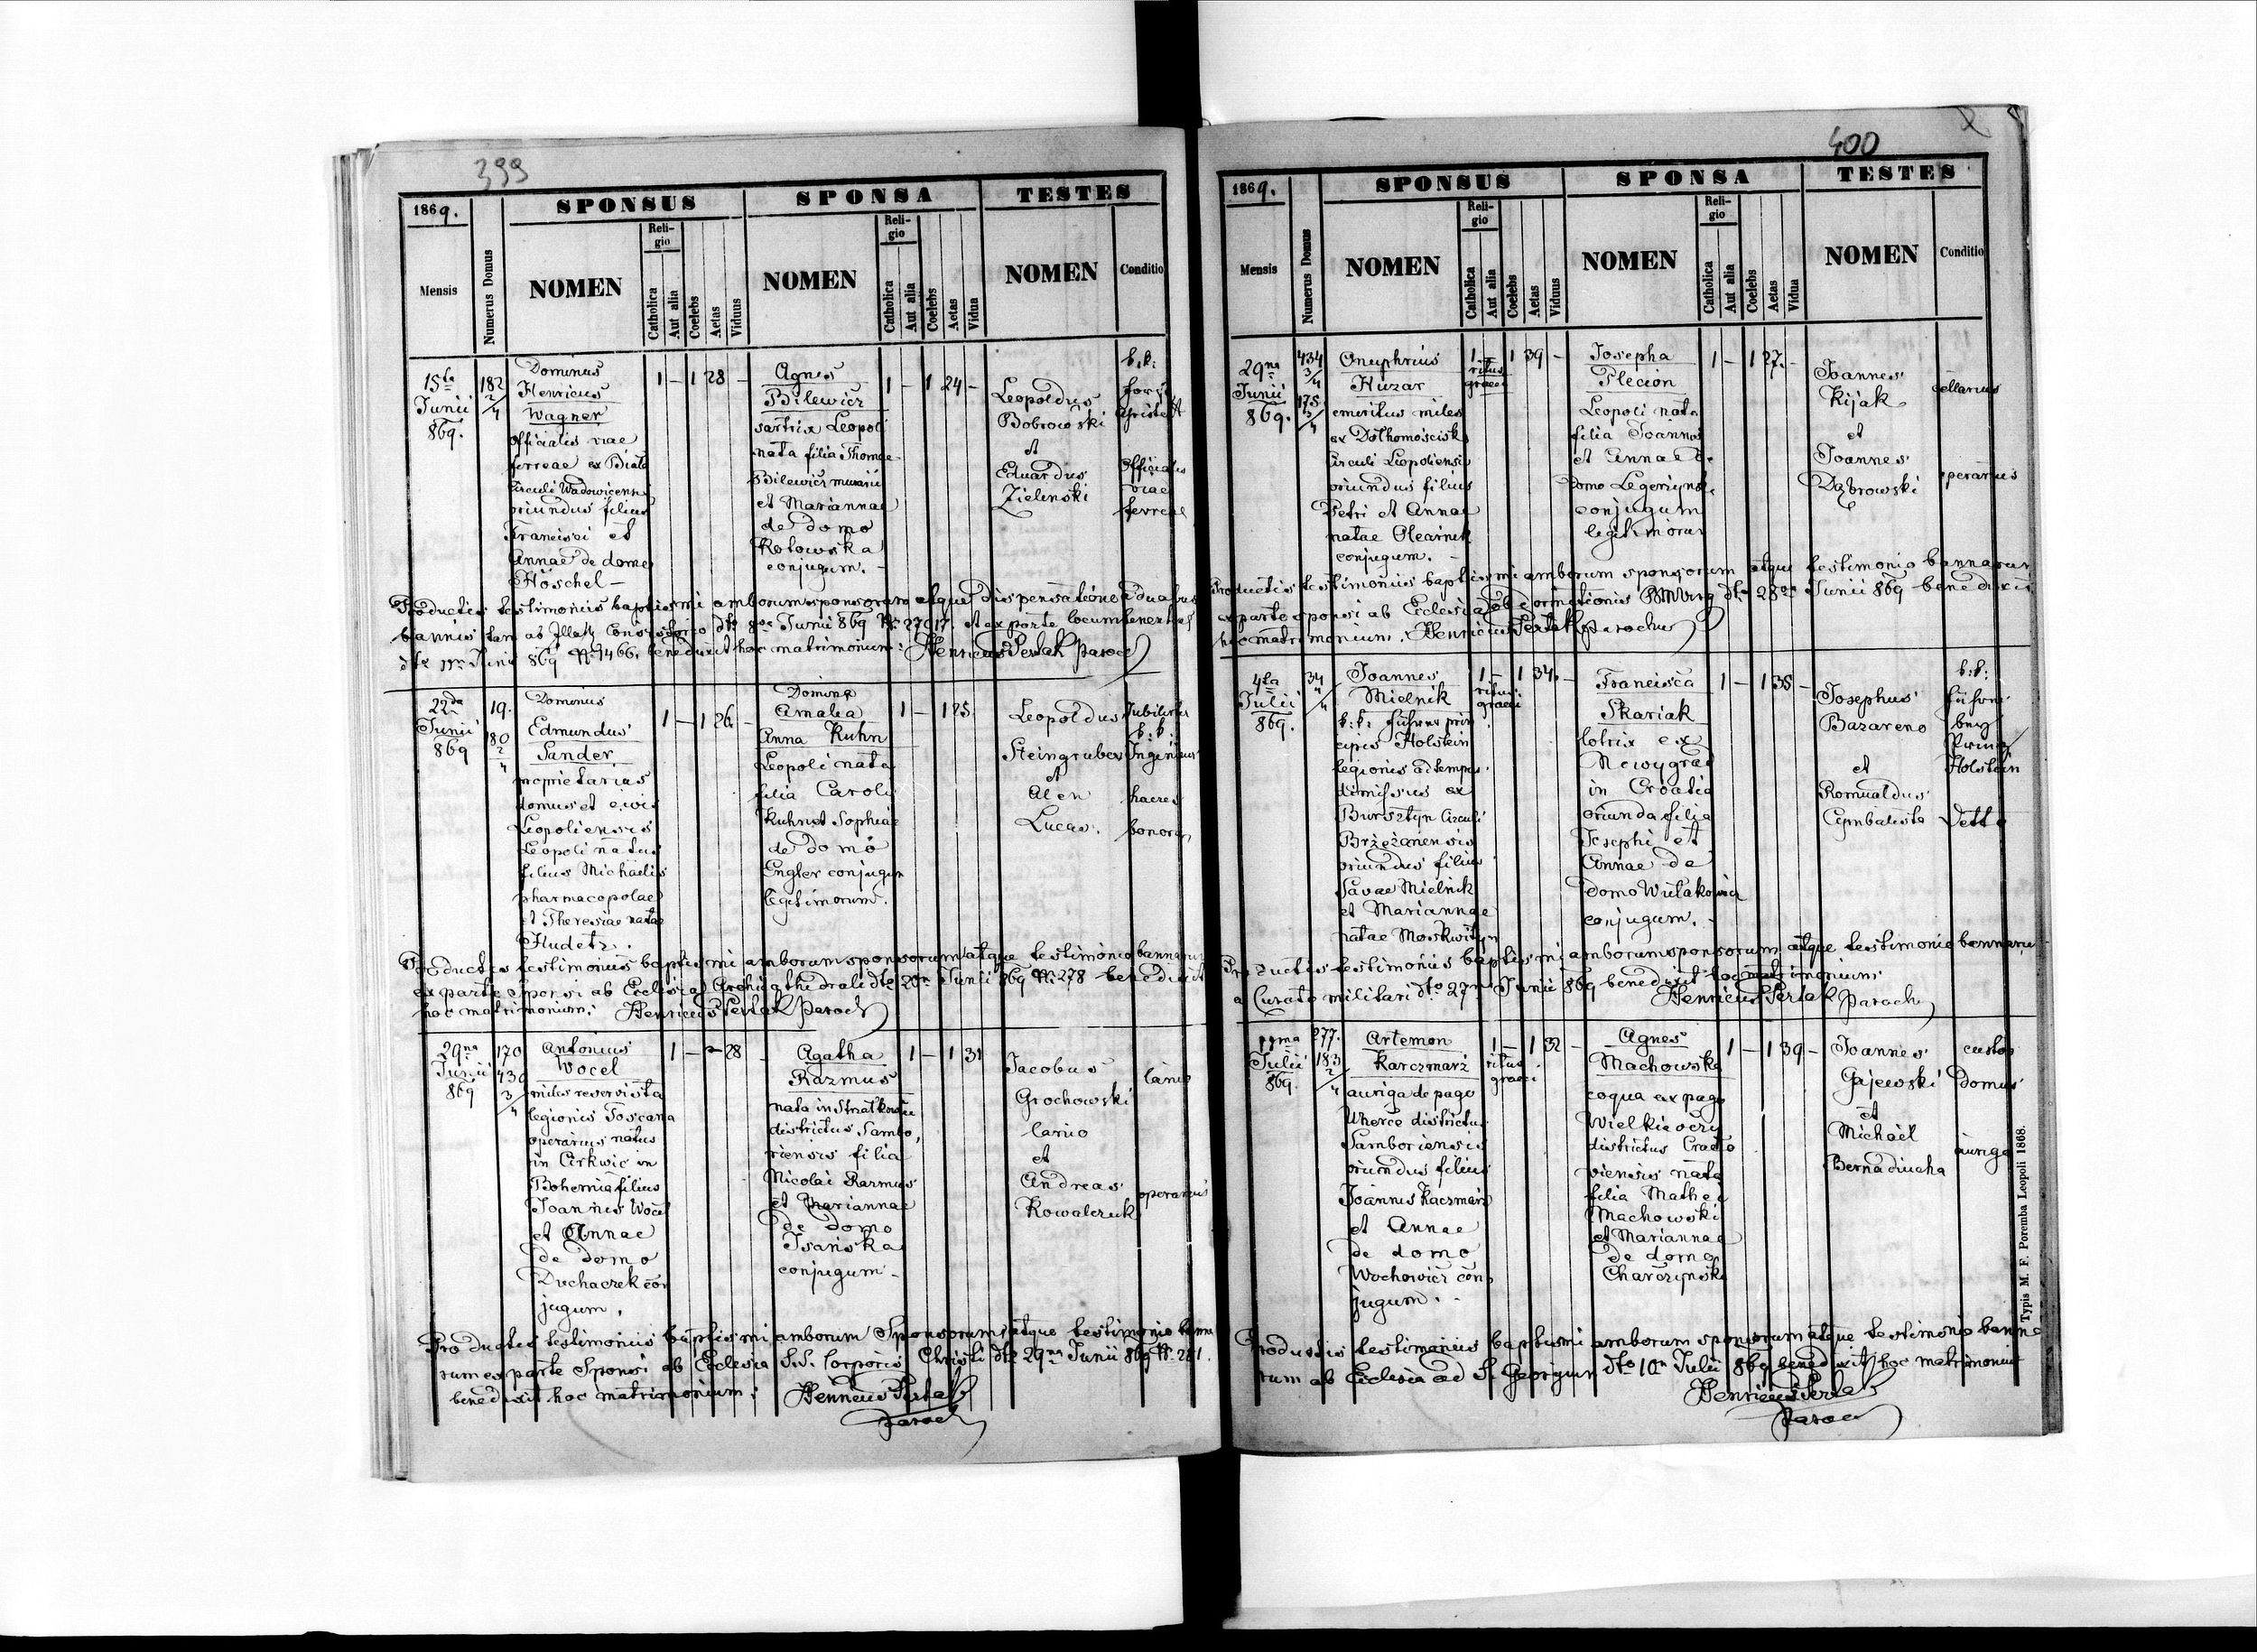 399
1869.
Mensis
Numerus Domus
SPONSUS
NOMEN
Religio
Catholica
Aut alia
Coelebs
Aetas
Viduus
SPONSA
NOMEN
Religio
Catholica
Aut alia
Coelebs
Aetas
Vidua
TESTES
NOMEN
Conditio
15ta
Junii
869.
182 2/4
Dominus
Henricus
Wagner
officialis viae
ferreae ex Biala
Circuli Wadowicensis
oriundus filius
Francisci et
Annae de domo
Höschel –
1 – 1 28 –
Agnes
Bilewicz
sartrix Leopoli
nata filia Thomae
Bilewicz murarii
et Mariannae
de domo
Kotowska
conjugum. –
1 – 1 24 –
Leopoldus
Bobrowski
et
Eduardus
Zielinski
k. k.
Officialis
viae
ferreae
Productis testimoniis baptismi amborum sponsorum atque dispensatione a duabus
bannis tam ab Consistorio dto 8va Junii 869 N. 27017. et ex parte locumtenentiae
dto 11ma Junii 869 N. 9466. benedixit hoc matrimonium: Henricus Perlak paroch
22da
Junii
869
19.
180 2/4
Dominus
Edmundus
Sander
proprietarius
domus et civis
Leopoliensis
Leopoli natus
filius Michaelis
pharmacopolae
et Theresiae natae
Hudetz.
1 – 1 26 –
Domina
Amalia
Anna Kuhn
Leopoli nata
filia Caroli
Kuhn et Sophiae
de domo
Engler conjugum
legitimorum.
1 – 1 25
Leopoldus
Steingruber
et
Alen
Lucas.
k. k.
Ingenieur
haeres
bonorum
Productis testimoniis baptismi amborum sponsorum atque testimonio bannorum
ex parte Sponsi ab Ecclesia Archicathedrali dto 20ma Junii 869 N. 278 benedixit
hoc matrimonium. Henricus Perlak paroch
29na
Junii
869
170
430 3/4
Antonius
Wocel
miles reservista
legionis Toscana
operarius natus
in Cirkwic in
Bohemia filius
Joannis Wocel
et Annae
de domo
Duchaczek con
jugum.
1 – – 28 –
Agatha
Razmus
nata in
districtus Sambo,
riensis filia
Nicolai Razmus
et Mariannae
de domo
Isanska
conjugum –
1 – 1 31
Jacobus
Grochowski
lanio
et
Andreas
Kowalczuk
lanio
operarius
Productis testimoniis baptismi amborum Sponsorum atque testimonio banno
rum ex parte Sponsi ab Ecclesia S.S. Corporis Christi dto 29na Junii 869 N. 281.
benedixit hoc matrimonium: Henricus Perlak
paroch
400
1869.
Mensis
Numerus Domus
SPONSUS
NOMEN
Religio
Catholica
Aut alia
Coelebs
Aetas
Viduus
SPONSA
NOMEN
Religio
Catholica
Aut alia
Coelebs
Aetas
Vidua
TESTES
NOMEN
Conditio
29na
Junii
869.
434 3/4
175 3/4
Onuphrius
Huzar
emeritus miles
ex Dołhomościsk
Circuli Leopoliensis
oriundus filius
Petri et Annae
natae Olearnik
conjugum. –
1 – 1 39 –
ritus
graeci
Josepha
Plecion
Leopoli nata
filia Joannis
et Annae de
domo
conjugum
legitimorum
1 – 1 27. –
Joannes
Kijak
et
Joannes
Dąbrowski
cellarius
operarius
Productis testimoniis baptismi amborum sponsorum atque testimonio bannorum
ex parte sponsi ab Ecclesia dto 28va Junii 869 benedixit
hoc matrimonium. Henricus Perlak parochus
4ta
Julii
869.
34 4/4
Joannes
Mielnik
k. k. führer prin
cipis Holstein
legionis ad tempus
dimissus ex
Bursztyn Circuli
Brzeżanensis
oriundus filius
Savae Mielnik
et Mariannae
natae Moskwityn
1 – 1 34. –
ritus
graeci
Francisca
Skariak
lotrix ex
Nowygrad
in Croatia
oriunda filia
Josephi et
Annae de
domo Wutakowicz
conjugum. –
1 – 1 35 –
Josephus
Bazareno
et
Romualdus
Cymbalista
k. k.
führer
bey
Prinz
Holstein
Detto
Productis testimoniis baptismi amborum sponsorum atque testimonio bannorum
a Curato militari dto 27ma Junii 869 benedixit hoc matrimonium.
Henricus Perlak paroch
Julii
869.
277.
183 2/4
Artemon
Karczmarz
auriga de pago
Uherce districtus
Samboriensis
oriundus filius
Joannis Kaczmarz
et Annae
de domo
Wochowicz con
jugum. –
1 – 1 32 –
ritus
graeci
Agnes
Machowska
coqua ex pago
Wielkie oczy
districtus Craco
viensis nata
filia Mathei
Machowski
et Mariannae
de domo
Charczynska
1 – 1 39 –
Joannes
Gajewski
et
Michael
Bernadiucha
custos
domus
auriga
Productis testimoniis baptismi amborum sponsorum atque testimonio banno
rum ab Ecclesia ad S. Georgium dto 10ma Julii 869 benedixit hoc matrimonium
Henricus Perlak
paroch
Typis M. F. Poremba Leopoli 1868.